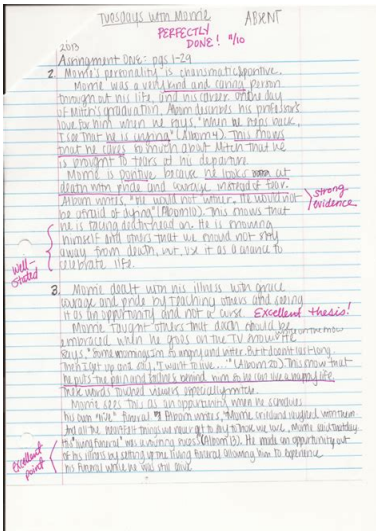 Tuesdays with Morrie
ABSENT
PERFECTLY
DONE! 11/10
2013
Assignment ONE: pgs 1-29
2. Morrie's personality is charismatic & positive.
Morrie was a very kind and caring person
through out his life, and his career. On the day
of Mitch's graduation, Albom describes his professor's
love for him when he says, "When he steps back,
I see that he is crying" (Albom 4). This shows
that he cares so much about Mitch that he
is brought to tears at his departure.
Morrie is positive because he looks at
death with pride and courage instead of fear.
Albom writes, "He would not wither. He would not
be afraid of dying" (Albom 10). This shows that
he is facing death head on. He is showing
himself and others that we should not shy
away from death, but use it as a chance to
celebrate life.
strong
evidence
well-
stated
3. Morrie dealt with his illness with grace
courage and pride by teaching others and seeing
it as an opportunity and not a curse.
Excellent thesis!
Morrie taught others that death should be
embraced when he goes on the TV show. He
says, "Some mornings I'm so angry and bitter. But it doesn't last long.
Then I get up and say, 'I want to live..." (Albom 20). This show that
he puts the pain and sadness behind him so he can live a happy life.
These words touched viewers especially Mitch.
Morrie sees this as an opportunity when he conducts
his own "live" funeral. Albom writes, "Morrie cried and laughed with them.
And all the heartfelt things we never get to say to those we love, Morrie said that day.
His "living funeral" was a rousing success" (Albom 13). He made an opportunity out
of his illness by setting up the living funeral allowing him to experience
his funeral while he was still alive.
excellent
point